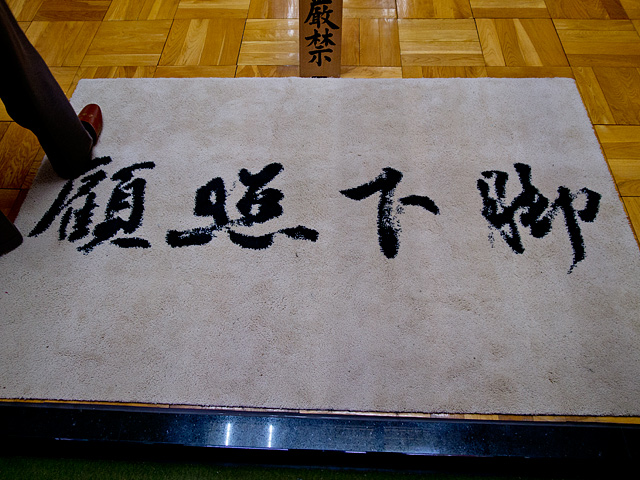 厳禁
脚下照顧